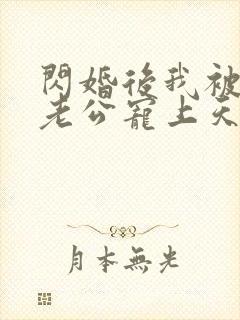 閃婚後我被
老公寵上天
月本無光